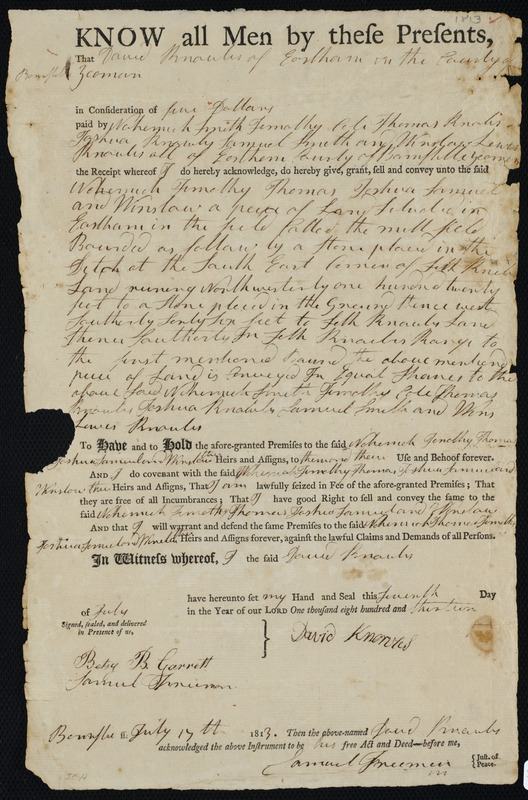 1813
KNOW all Men by these Presents,
That David Knowles of Eastham in the County of
Barnstble Yeoman
in Consideration of five Dollars
paid by Nehemiah Smith Timothy Cole Thomas Knowles
Joshua Knowls Samuel Smith and Winslow Lewes
Knowles all of Eastham County of Barnstble yeomen
the Receipt whereof I do hereby acknowledge, do hereby give, grant, sell and convey unto the said
Nehemiah Timothy Thomas Joshua Samuel
and Winslow a peice of Land Situate in
Eastham in the field Called the mill field
Bounded as follows by a Stone placed in the
Ditch at the South East Corner of Seth Knowls
Land runing Northwesterly one hundred twenty
feet to a Stone placed in the Ground thence west
Southerly forty six feet to Seth Knowls Land
thence Southerly In Seth Knowls Range to
the first mentioned bound the above mentioned
peice of Land is Conveyed In Equal Shares to the
above Said Nehemiah Smith Timothy Cole Thomas
Knowls Joshua Knowls Samuel Smith and Wins
Lewes Knowls
To Have and to Hold the afore-granted Premises to the said Nehemiah Timothy Thomas
Joshua Samuel and Winslow thr Heirs and Assigns, to them and their Use and Behoof forever.
And I do covenant with the said Nehemiah Timothy Thomas Joshua Samuel and
Winslow their Heirs and Assigns, That I am lawfully seized in Fee of the afore-granted Premises; That
they are free of all Incumbrances; That I have good Right to sell and convey the same to the
said Nehemiah Timothy Thomas Joshua Samuel and Winslow
And that I will warrant and defend the same Premises to the said Nehemiah Thomas Timothy
Joshua Samuel and Winslow thr Heirs and Assigns forever, against the lawful Claims and Demands of all Persons.
In Witness whereof, I the said David Knowls
have hereunto set my Hand and Seal this seventh Day
of July in the Year of our LORD One thousand eight hundred and thirteen
Signed, sealed, and delivered
in Presence of us,
David Knowles
Betsy B. Garrett
Samuel Freeman
Barnstble ss. July 17th 1813. Then the above-named David Knowls
acknowledged the above Instrument to be his free Act and Deed—before me,
Samuel Freeman
Just. of
Peace.